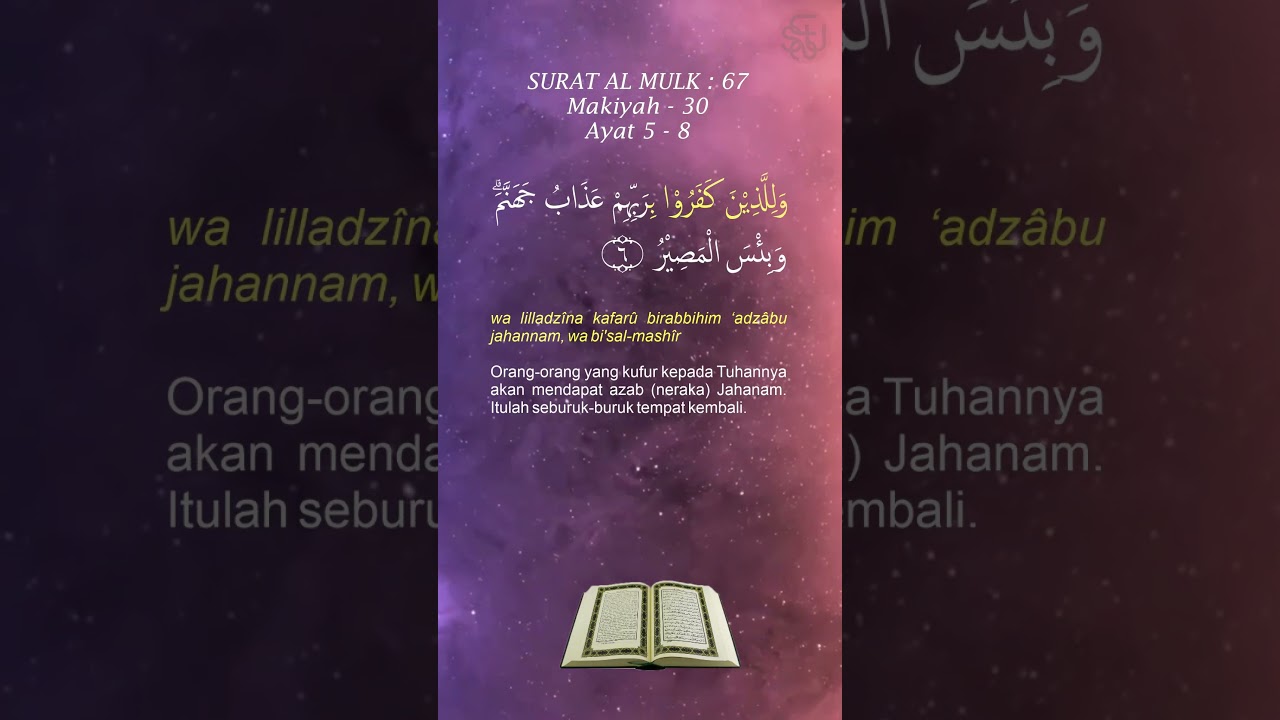 SURAT AL MULK : 67
Makiyah - 30
Ayat 5 - 8
وَلِلَّذِيْنَ كَفَرُوْا بِرَبِّهِمْ عَذَابُ جَهَنَّمَۗ
وَبِئْسَ الْمَصِيْرُ ۝٦
wa lilladzîna kafarû birabbihim ‘adzâbu
jahannam, wa bi'sal-mashîr
Orang-orang yang kufur kepada Tuhannya
akan mendapat azab (neraka) Jahanam.
Itulah seburuk-buruk tempat kembali.